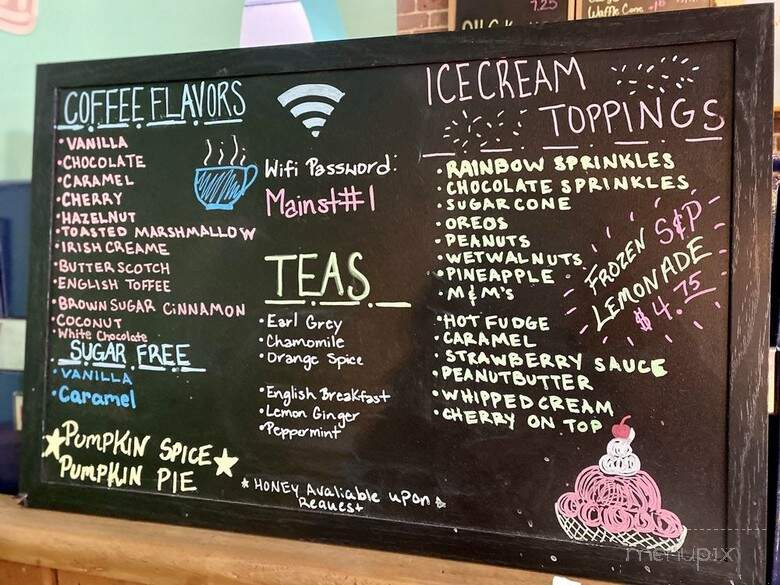 7.25
Waffle Cone
COFFEE FLAVORS
• VANILLA
• CHOCOLATE
• CARAMEL
• CHERRY
• HAZELNUT
• TOASTED MARSHMALLOW
• IRISH CREAME
• BUTTERSCOTCH
• ENGLISH TOFFEE
• BROWN SUGAR CINNAMON
• COCONUT
• White Chocolate
SUGAR FREE
• VANILLA
• Caramel
PUMPKIN SPICE
PUMPKIN PIE
Wifi Password:
Mainst#1
TEAS
• Earl Grey
• Chamomile
• Orange Spice
• English Breakfast
• Lemon Ginger
• Peppermint
* HONEY Avaliable upon
Request
ICECREAM
TOPPINGS
• RAINBOW SPRINKLES
• CHOCOLATE SPRINKLES
• SUGAR CONE
• OREOS
• PEANUTS
• WETWALNUTS
• PINEAPPLE
• M&M'S
• HOT FUDGE
• CARAMEL
• STRAWBERRY SAUCE
• PEANUTBUTTER
• WHIPPED CREAM
• CHERRY ON TOP
FROZEN S&P
LEMONADE
$4.75
menupix